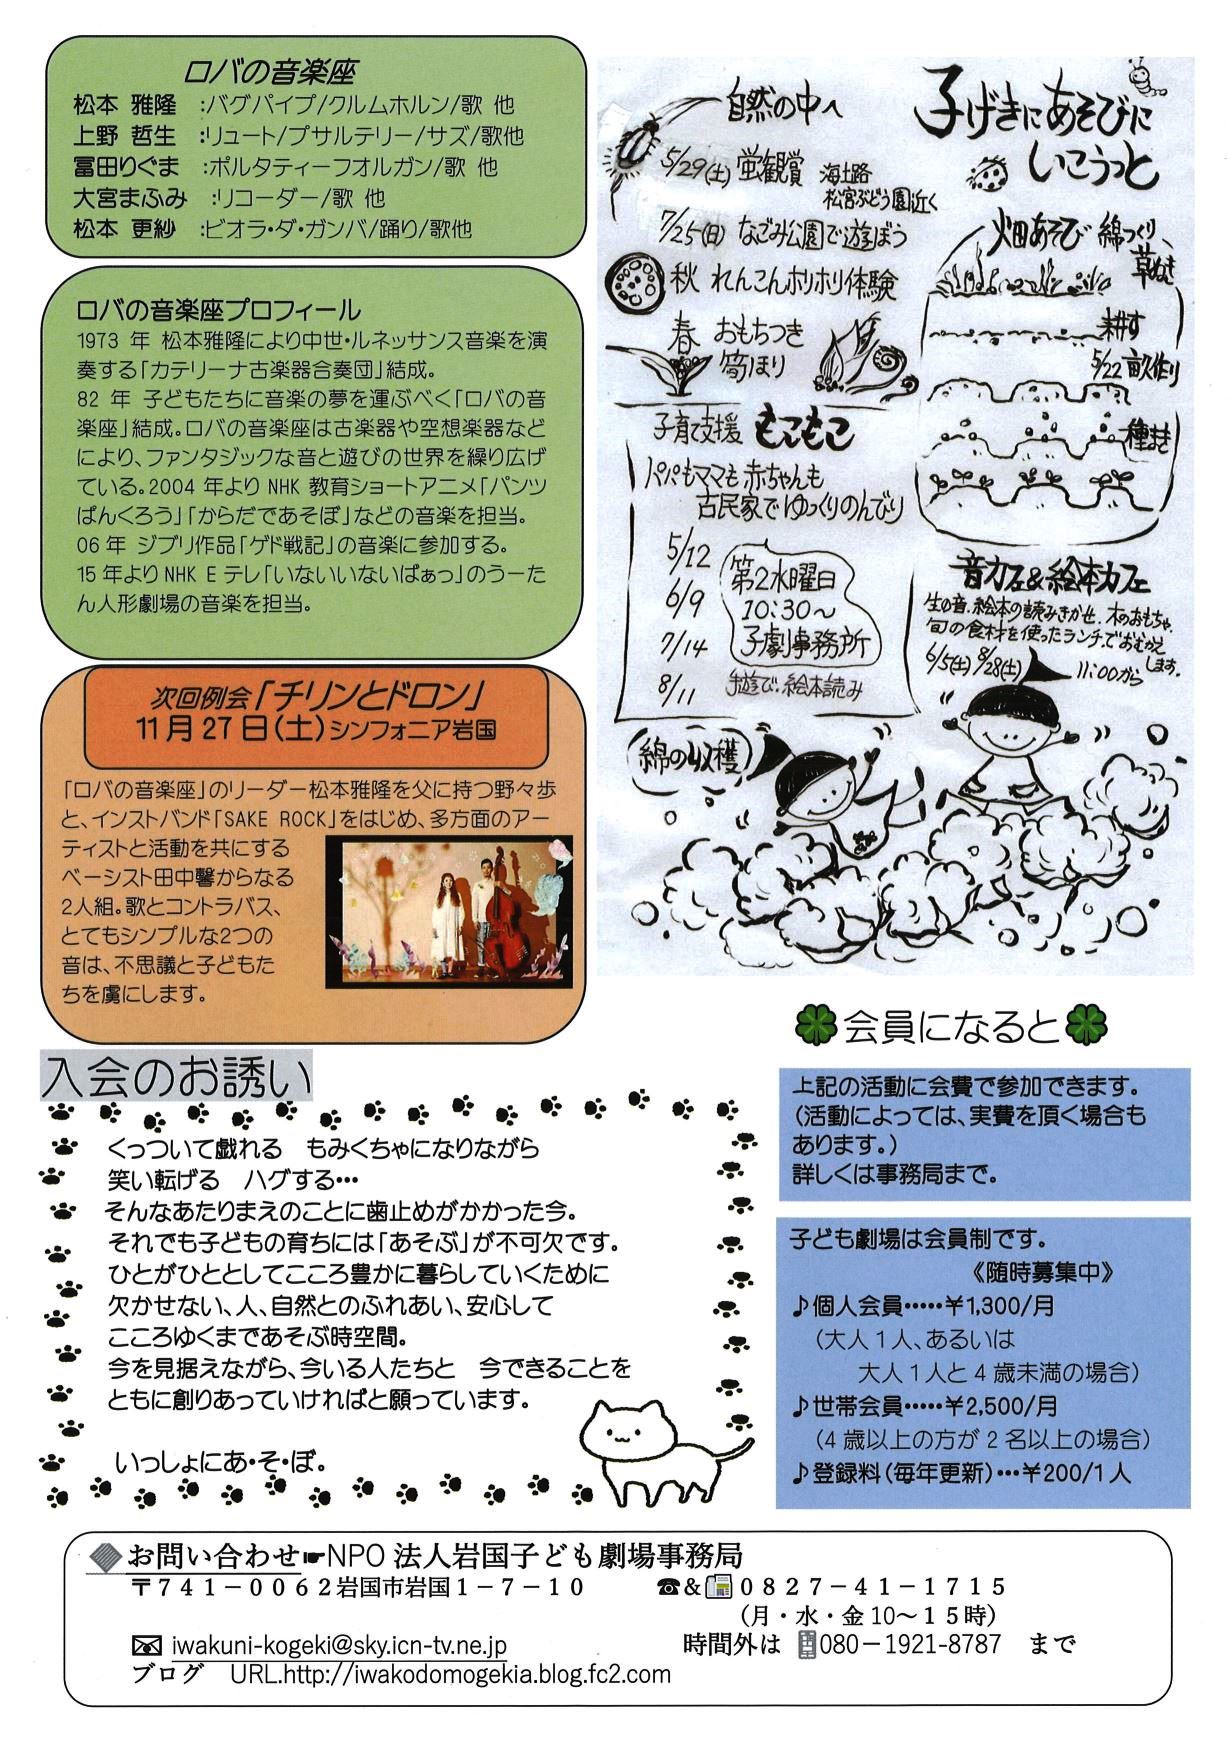 ロバの音楽座
松本 雅隆 :バグパイプ/クルムホルン/歌 他
上野 哲生 :リュート/プサルテリー/サズ/歌他
冨田りぐま :ポルタティーフオルガン/歌 他
大宮まふみ :リコーダー/歌 他
松本 更紗 :ビオラ・ダ・ガンバ/踊り/歌他
ロバの音楽座プロフィール
1973 年 松本雅隆により中世・ルネッサンス音楽を演
奏する「カテリーナ古楽器合奏団」結成。
82 年 子どもたちに音楽の夢を運ぶべく「ロバの音
楽座」結成。ロバの音楽座は古楽器や空想楽器など
により、ファンタジックな音と遊びの世界を繰り広げ
ている。2004 年より NHK 教育ショートアニメ「パンツ
ぱんくろう」「からだであそぼ」などの音楽を担当。
06 年 ジブリ作品「ゲド戦記」の音楽に参加する。
15 年より NHK E テレ「いないいないばぁっ」のうーた
ん人形劇場の音楽を担当。
次回例会「チリンとドロン」
11 月 27 日(土)シンフォニア岩国
「ロバの音楽座」のリーダー松本雅隆を父に持つ野々歩
と、インストバンド「SAKE ROCK」をはじめ、多方面のアー
ティストと活動を共にする
ベーシスト田中馨からなる
2人組。歌とコントラバス、
とてもシンプルな2つの
音は、不思議と子どもた
ちを虜にします。
子げきにあそびに
いこうっと
自然の中へ
5/29(土) 蛍観賞 海土路
松宮ぶどう園近く
7/25(日) なごみ公園で遊ぼう
秋 れんこんホリホリ体験
春 おもちつき
筍ほり
畑あそび 綿つくり、
草ぬき
耕す
5/22 畝作り
種まき
子育て支援 もこもこ
パパもママも赤ちゃんも
古民家でゆっくりのんびり
5/12
6/9
7/14
8/11
第2水曜日
10:30~
子劇事務所
手遊び、絵本読み
音カフェ&絵本カフェ
生の音、絵本の読みきかせ、木のおもちゃ、
旬の食材を使ったランチでおむかえ
します。
6/5(土) 8/28(土) 11:00から
綿の収穫
会員になると
上記の活動に会費で参加できます。
(活動によっては、実費を頂く場合も
あります。)
詳しくは事務局まで。
子ども劇場は会員制です。
《随時募集中》
♪個人会員・・・・・¥1,300/月
(大人 1 人、あるいは
大人 1 人と 4 歳未満の場合)
♪世帯会員・・・・・¥2,500/月
(4 歳以上の方が 2 名以上の場合)
♪登録料(毎年更新)・・・¥200/1 人
入会のお誘い
くっついて戯れる もみくちゃになりながら
笑い転げる ハグする・・・
そんなあたりまえのことに歯止めがかかった今。
それでも子どもの育ちには「あそぶ」が不可欠です。
ひとがひととしてこころ豊かに暮らしていくために
欠かせない、人、自然とのふれあい、安心して
こころゆくまであそぶ時空間。
今を見据えながら、今いる人たちと 今できることを
ともに創りあっていければと願っています。
いっしょにあ・そ・ぼ。
お問い合わせ☛NPO 法人岩国子ども劇場事務局
〒741-0062岩国市岩国1-7-10 ☎&📠0827-41-1715
(月・水・金 10~15時)
✉ iwakuni-kogeki@sky.icn-tv.ne.jp 時間外は 080-1921-8787 まで
ブログ URL.http://iwakodomogekia.blog.fc2.com